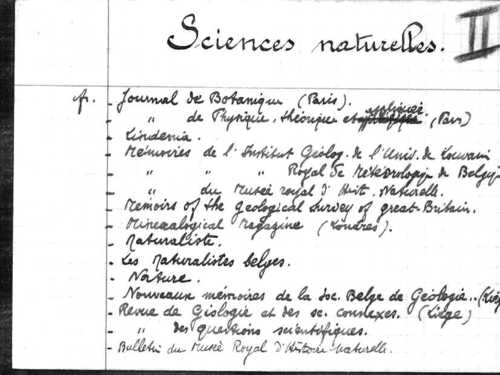 Sciences naturelles. II
fr. - Journal de Botanique (Paris).
- " de Physique théorique et appliquée (Paris)
- Lindenia.
- Mémoires de l'Institut Géolog. de l'Univ. de Louvain
- " " " Royal de Météorologie de Belgi
- " du Musée royal d'Hist. Naturelle.
- Memoirs of the geological Survey of great-Britain.
- Mineralogical magazine (Londres).
- Naturaliste.
- Les naturalistes belges.
- Nature.
- Nouveaux mémoires de la Soc. Belge de Géologie.. (Liè
- Revue de Géologie et des sc. connexes. (Liège)
- " des questions scientifiques.
- Bulletin du Musée Royal d'Histoire Naturelle.